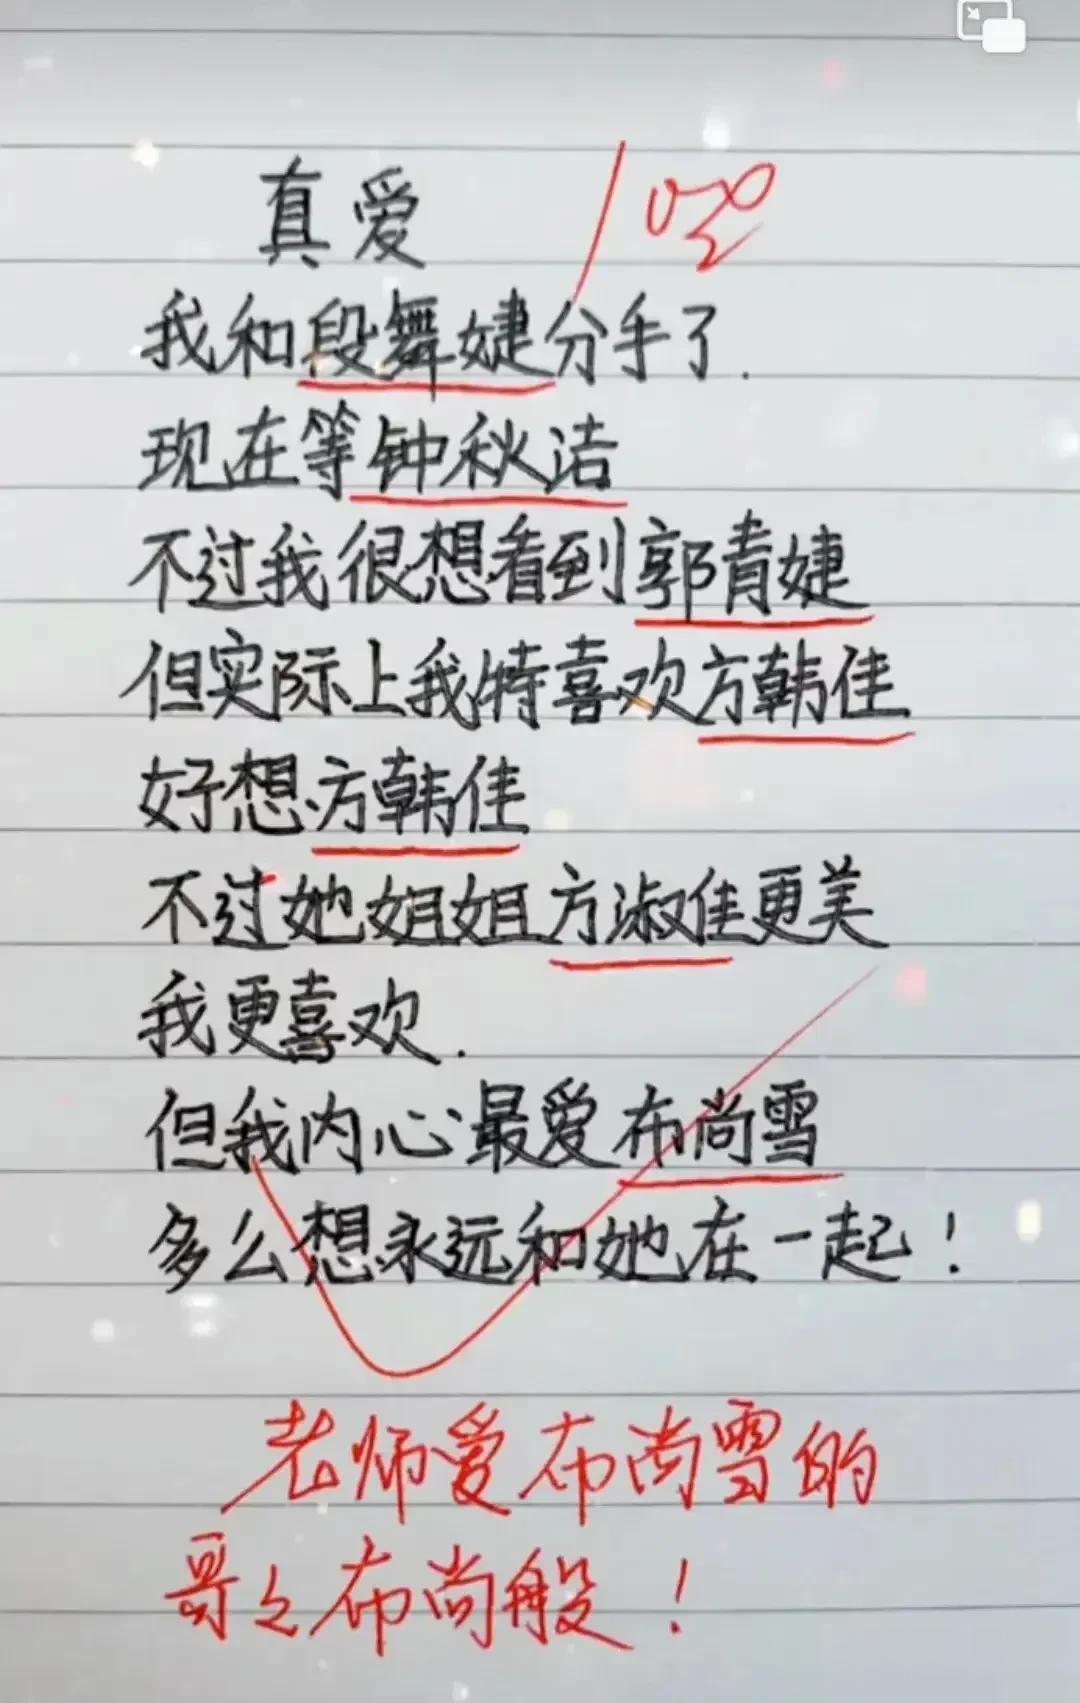 真爱
100
我和段舞婕分手了.
现在等钟秋洁
不过我很想看到郭青婕
但实际上我特喜欢方韩佳
好想方韩佳
不过她姐姐方淑佳更美
我更喜欢.
但我内心最爱布尚雪
多么想永远和她在一起!
老师爱布尚雪的
哥々布尚般!